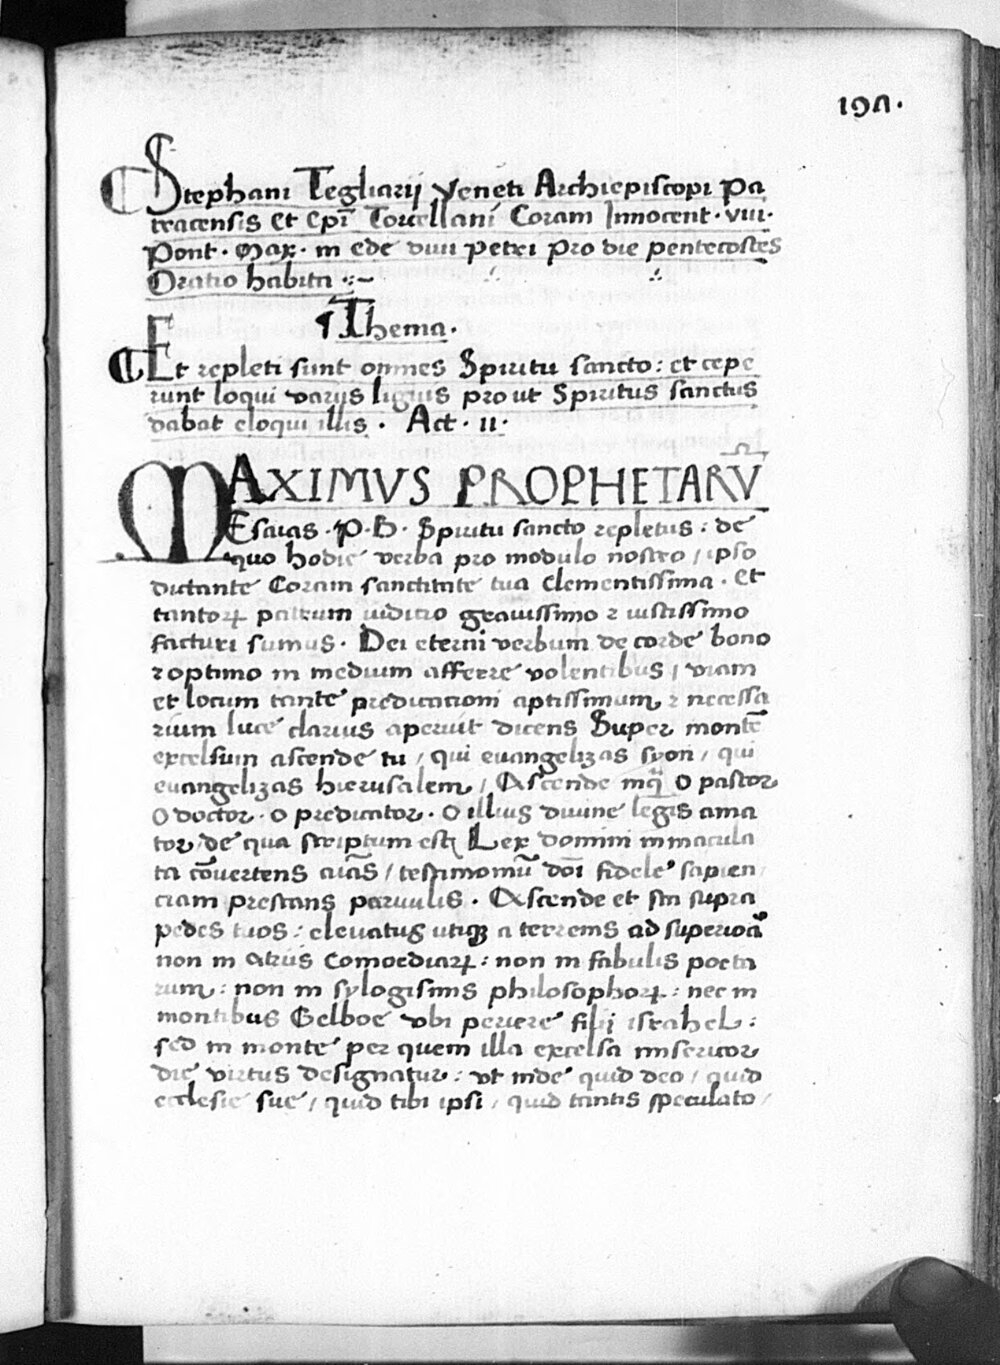 194.
Stephani Tegliarij Veneti Archiepiscopi Pa
tracensis et Epī Torcellani Coram Innocent. viii.
Pont. Max. in ede diui petri pro die pentecostes
Oratio habita
¶ Thema.
Et repleti sunt omnes Spiritu sancto: et cepe
runt loqui variis liguis prout Spiritus sanctus
dabat eloqui illis. Act. ii.
MAXIMUS PROPHETARV̄
Esaias. P. B. Spiritu sancto repletus: de
quo hodie verba pro modulo nostro / ipso
dictante Coram sanctitate tua Clementissima. et
tantoꝝ patrum iudicio grauissimo ⁊ iustissimo
facturi sumus. Dei eterni verbum de corde bono
⁊ optimo in medium afferre volentibus / viam
et locum tante predicationi aptissimum ⁊ necessa
rium luce clarius aperuit dicens Super montē
excelsum ascende tu / qui euangelizas syon / qui
euangelizas hierusalem / Ascende inq̄ O pastor
O doctor. O predicator. O illius diuine legis ama
tor / de qua scriptum est Lex domini inmacula
ta cōuertens aīas / testimoniū doī fidele sapien
ciam prestans paruulis. Ascende et sta supra
pedes tuos: eleuatus utiqꝫ a terrenis ad superiora
non in atriis Comoediaꝝ: non in fabulis poeta
rum: non in sylogismis philosophoꝝ: nec in
montibus Gelboe vbi periere filij israhel:
sed in monte per quem illa excelsa misericor
die virtus designatur: vt inde quid deo / quid
ecclesie sue / quid tibi ipsi / quid tantis speculato